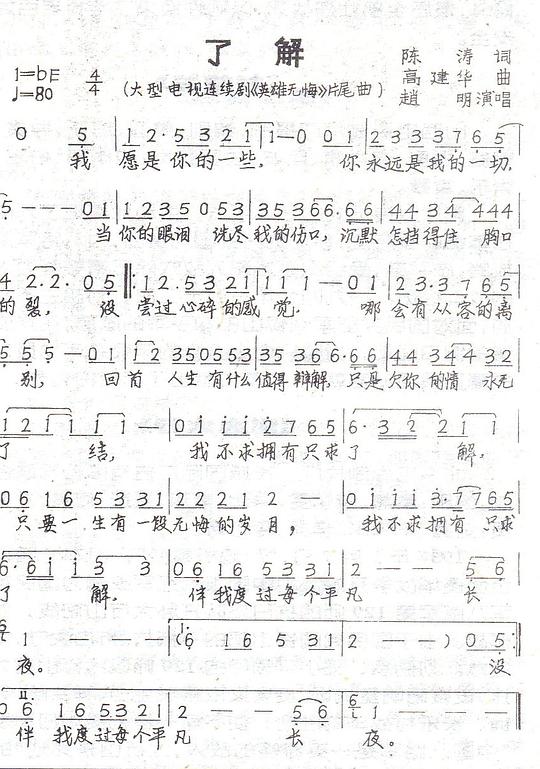 了 解
陈 涛 词
1=bE 4/4 高建华 曲
♩=80 (大型电视连续剧《英雄无悔》片尾曲) 赵 明演唱
0 5 | 1 2· 5 3 2 1 | 1 — 0 0 1 | 2 3 3 3 7 6 5
我 愿是你的一些, 你永远是我的一切,
5 — — — 0 1 | 1 2 3 5 0 5 3 | 3 5 3 6 6· 6 6 | 4 4 3 4 4 4 4 |
当你的眼泪 洗尽我的伤口, 沉默怎挡得住 胸口
4 2 2· 0 5 ‖: 1 2· 5 3 2 1 | 1 1 1 — 0 1 | 2 3· 3 7 6 5
的裂, 没 尝过心碎的感觉. 哪 会有从容的离
5 5 5 — 0 1 | 1 2 3 5 0 5 5 3 | 3 5 3 6 6· 6 6 | 4 4 3 4 4 3 2
别, 回首 人生有什么值得辩解, 只是欠你的情 永无
1 2 1 1 1 1 — | 0 1 1 1 2 7 6 5 | 6· 3 2 2 1 1
了 结, 我不求拥有只求了 解,
0 6 1 6 5 3 3 1 | 2 2 2 1 2 — | 0 1 1 1 3· 7 7 6 5
只要一生有一段无悔的岁月, 我不求拥有 只求
6· 6 1 1 3 3 | 0 6 1 6 5 3 3 1 | 2 — — 5 6
了 解, 伴我度过每个平凡 长
1 — — | (6 1 6 5 3 1 | 2 — — ) 0 5 :
夜。 没
II.
0 6 1 6 5 3 2 1 | 2 — — 5 6 | 6 1 — — — ‖
伴 我度过每个平凡 长 夜。